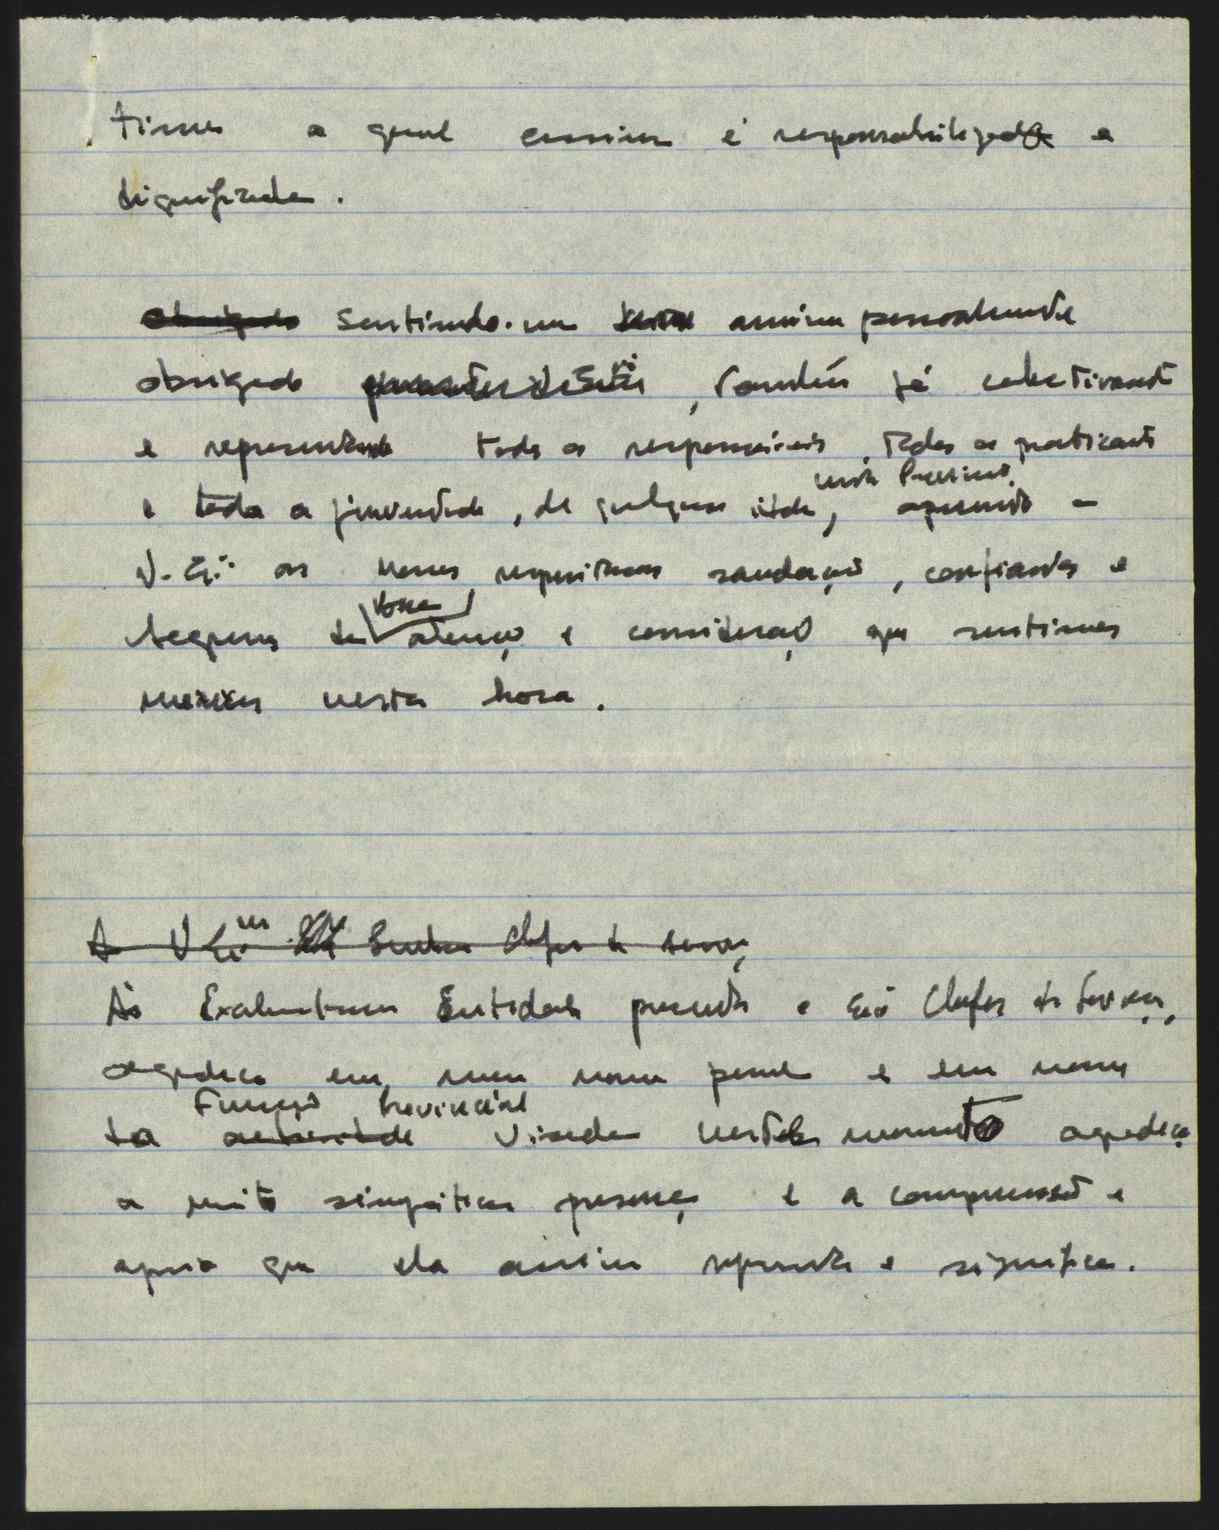 a qual assim é responsabilizada e
dignificada.
obrigado Sentindo-me assim pessoalmente
obrigado, também já colectivamente
e representando todos os responsáveis, todos os praticantes
nesta Província
e toda a juventude, de qualquer idade, apresento a
V. Ex.ª os nossos respeitosas saudações, confiantes e
seguros da atenção e consideração que sentimos
boa
nesta hora.
A V Ex.as Senhores Chefes de serviço
Às Excelentíssimas Entidades presentes e aos Chefes de Serviços,
agradeço em meu nome pessoal e em nome
Função Provincial
da autoridade visada neste momento agradeço
a muito simpática presença e a compreensão e
apoio que ela assim representa e significa.